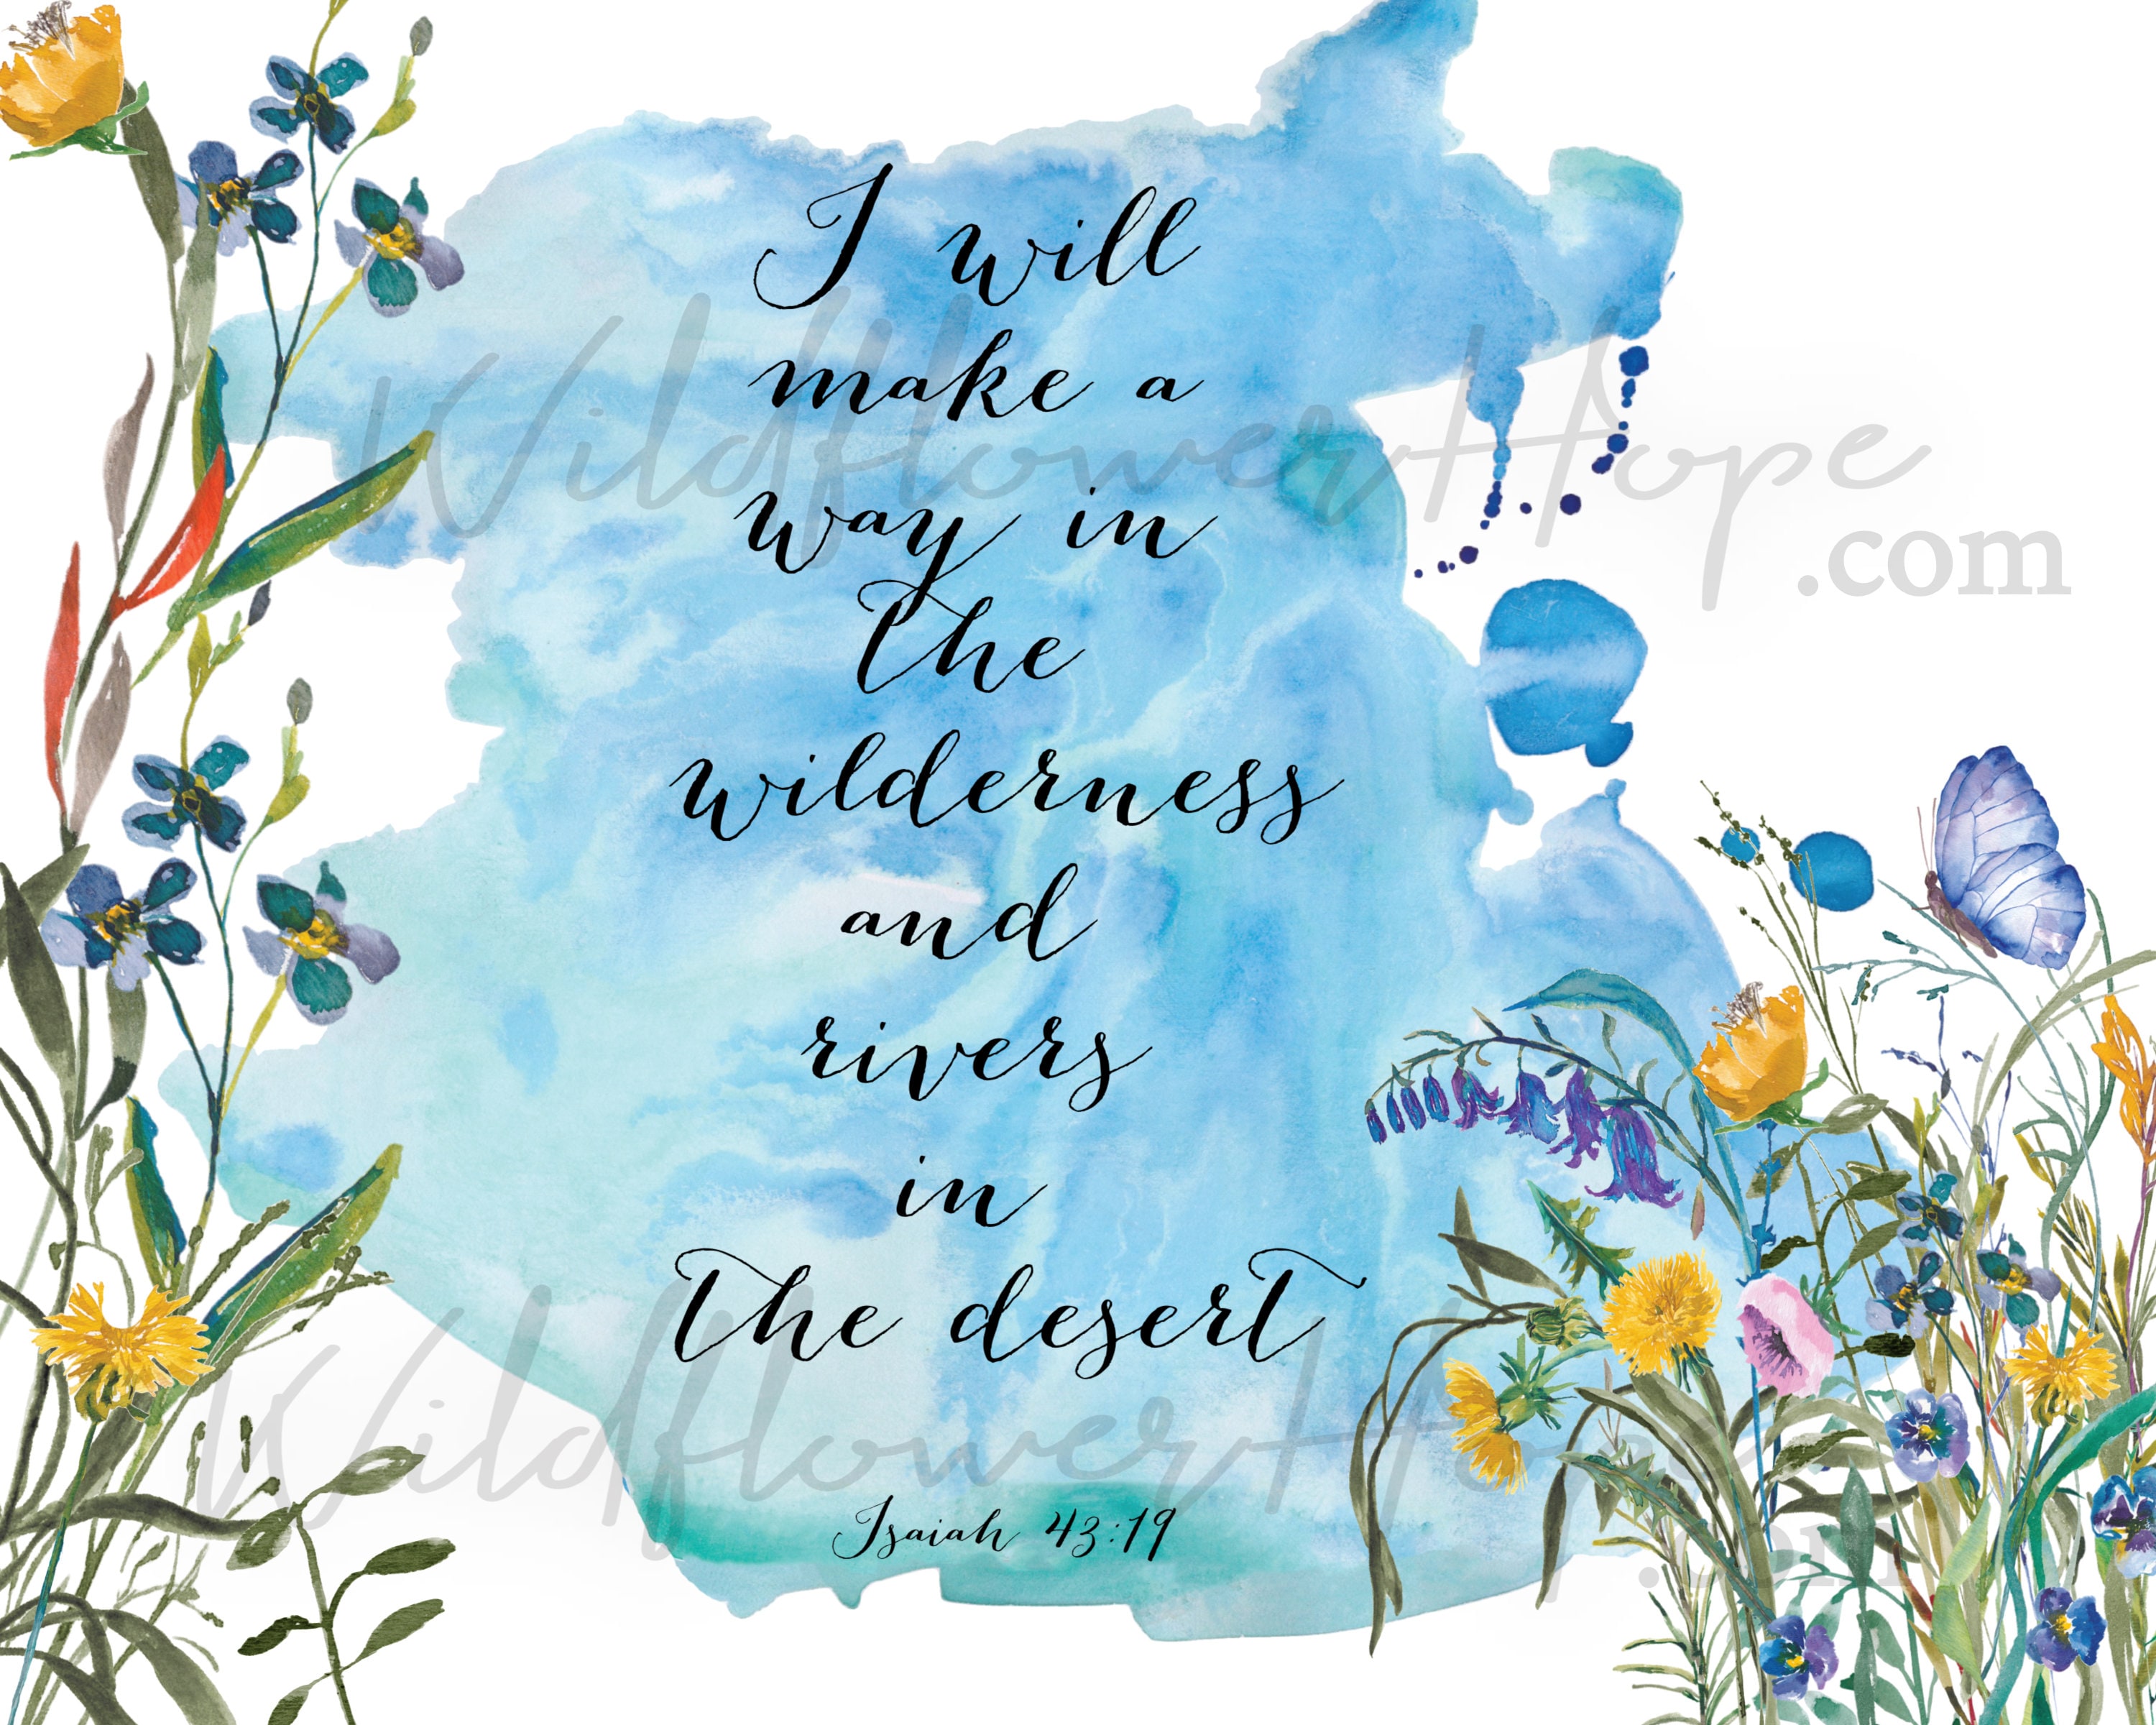 I will
make a
WildflowerHope
way in
.com
the
wilderness
and
rivers
in
the desert
WildflowerHope
Isaiah 43:19
.com